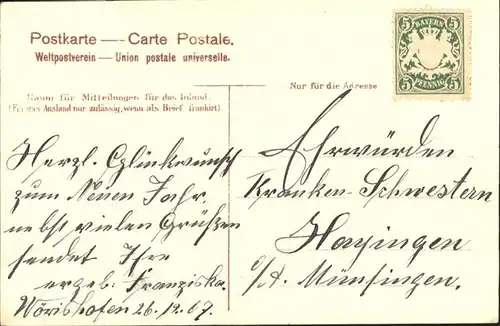 Postkarte — Carte Postale.
Weltpostverein — Union postale universelle.
5 BAYERN 5
5 PFENNIG 5
Nur für die Adresse
Raum für Mitteilungen für das Inland.
(Für das Ausland nur zulässig, wenn als Brief frankirt).
Herzl. Glückwunsch
zum Neuen Jahr
nebst vielen Grüßen
sendet Ihre
ergeb. Franziska.
Wörishofen 26.12.07.
Ehrwürden
Kranken-Schwestern
Hayingen
O/A. Münsingen.